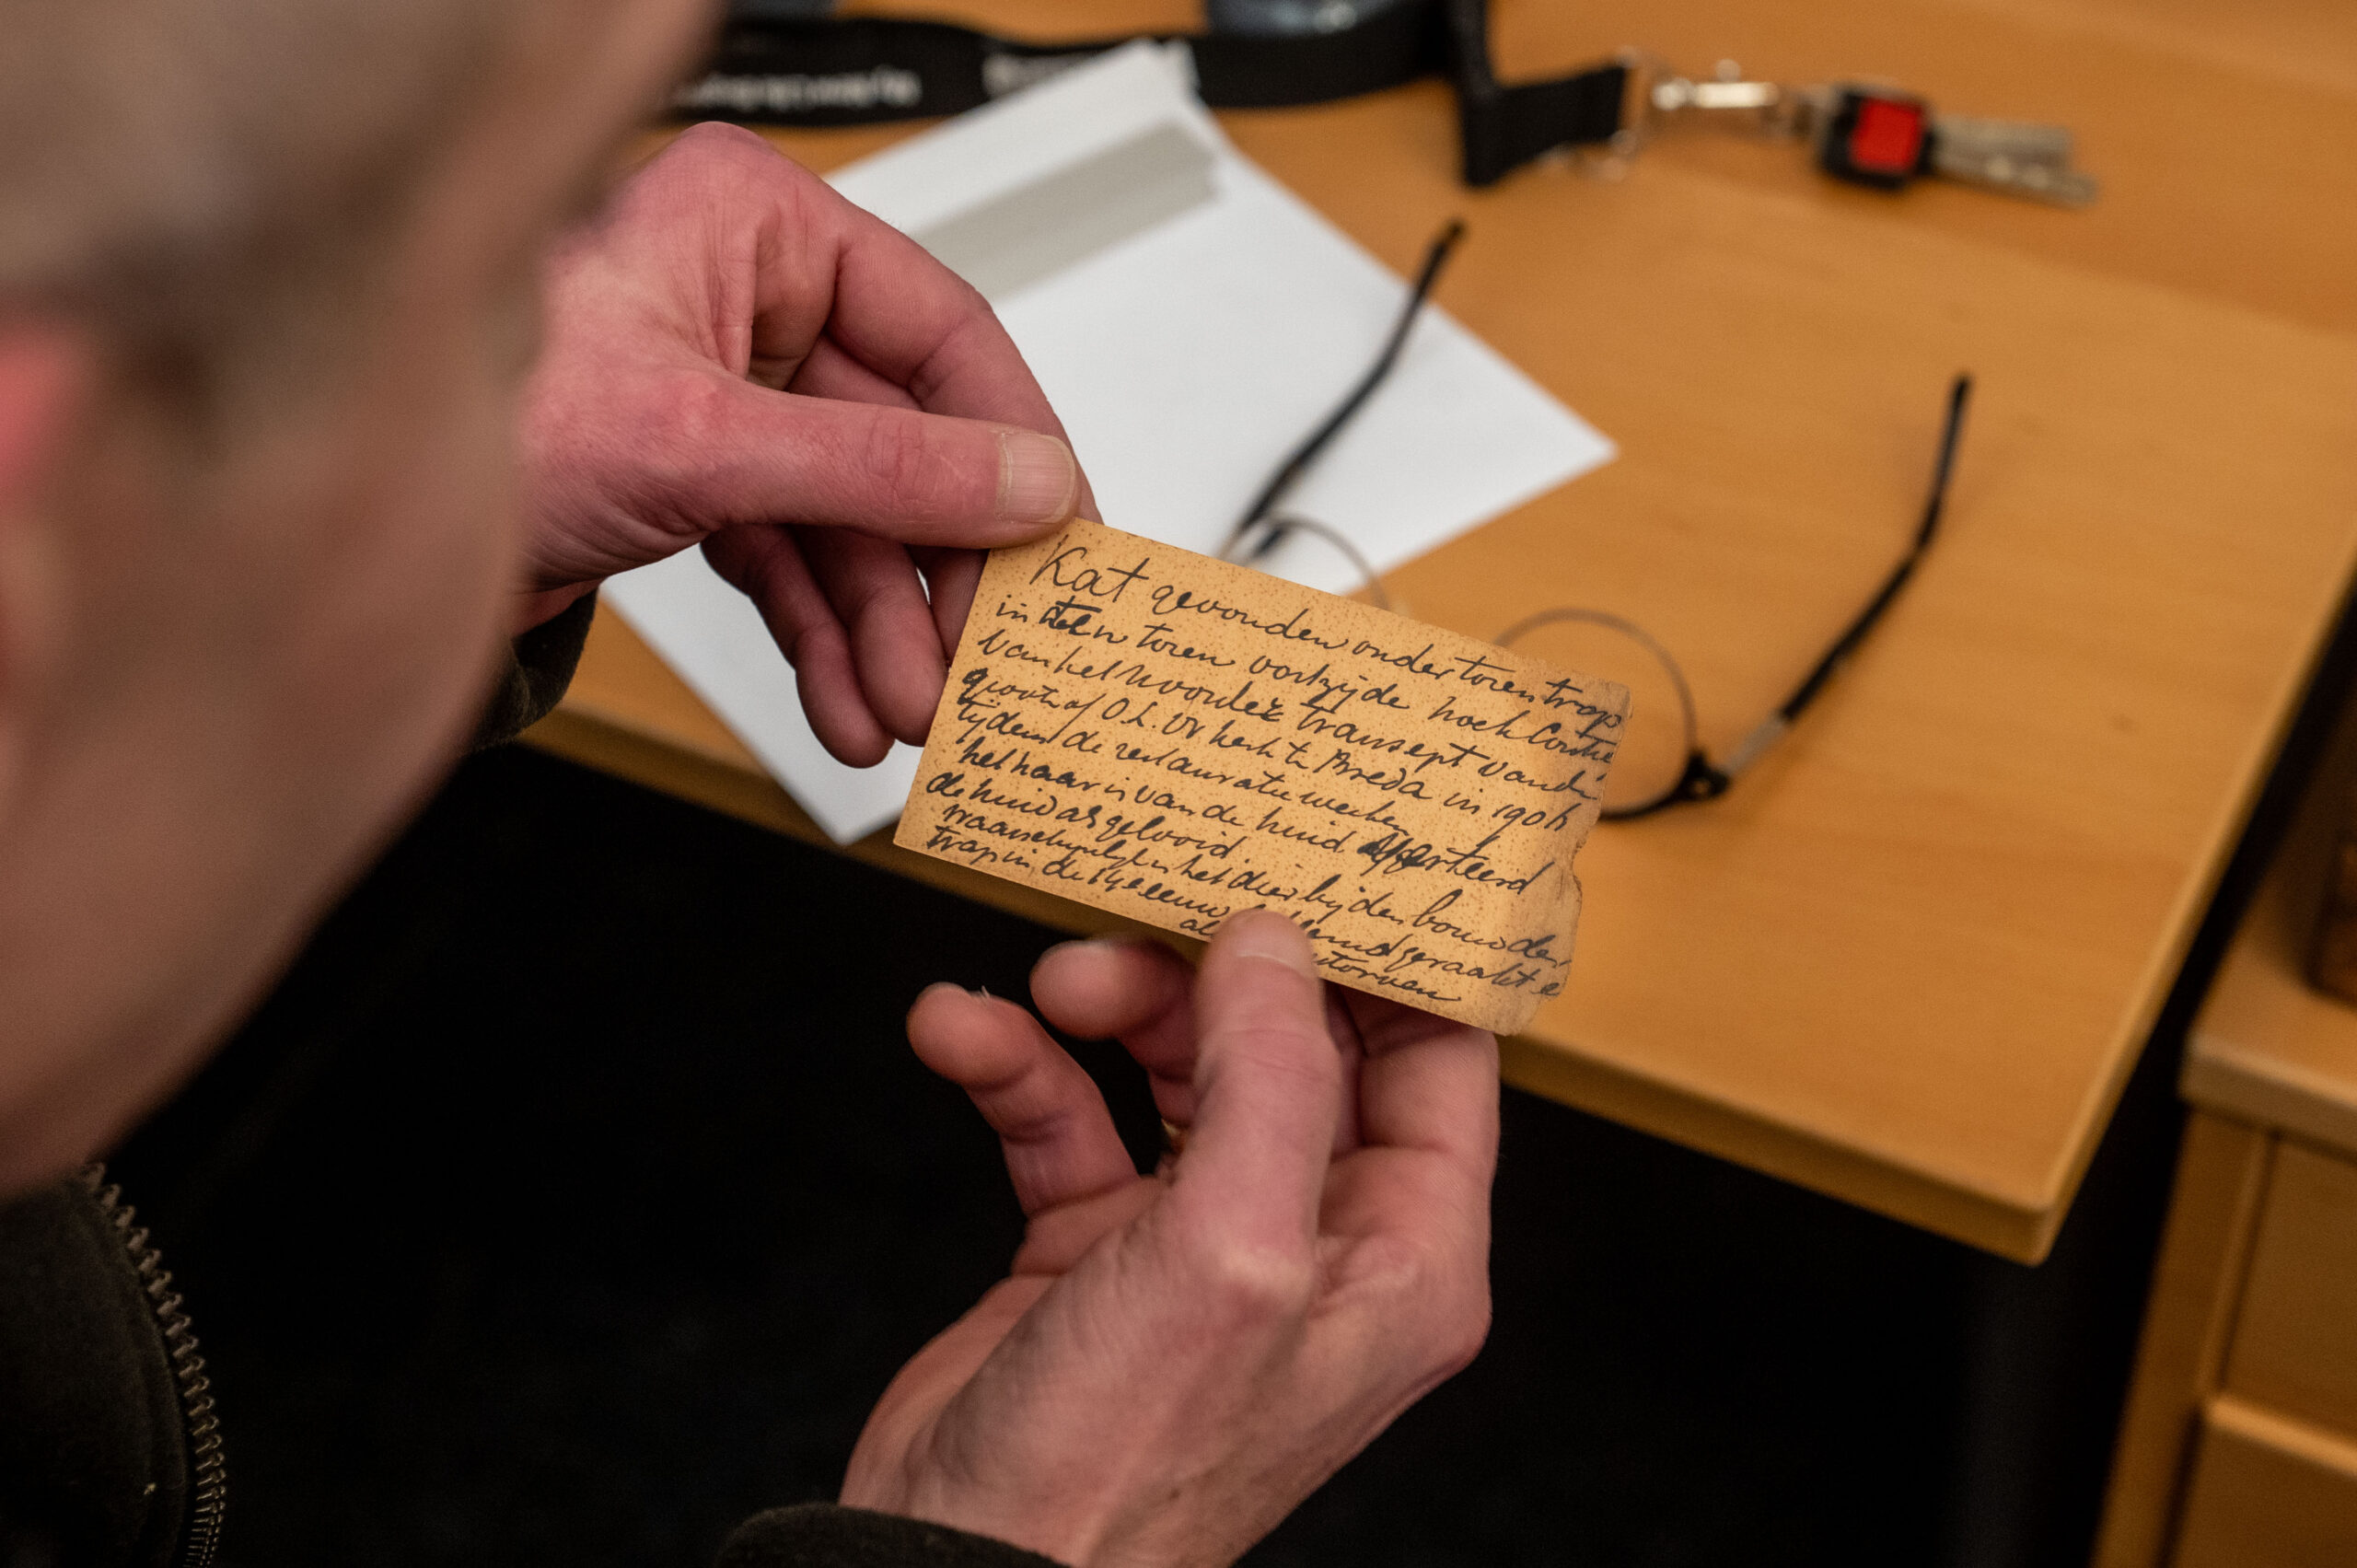 Kat gevonden onder toren trap
in toren oostzijde hoek
van het Noorder transept van de
groote of O.L.Vr kerk te Breda in 1906
tijdens de restauratie werken
het haar is van de huid
de huid als gelooid.
waarschijnlijk is het dier bij den bouw der
trap in de 14e eeuw geraakt e
al storven